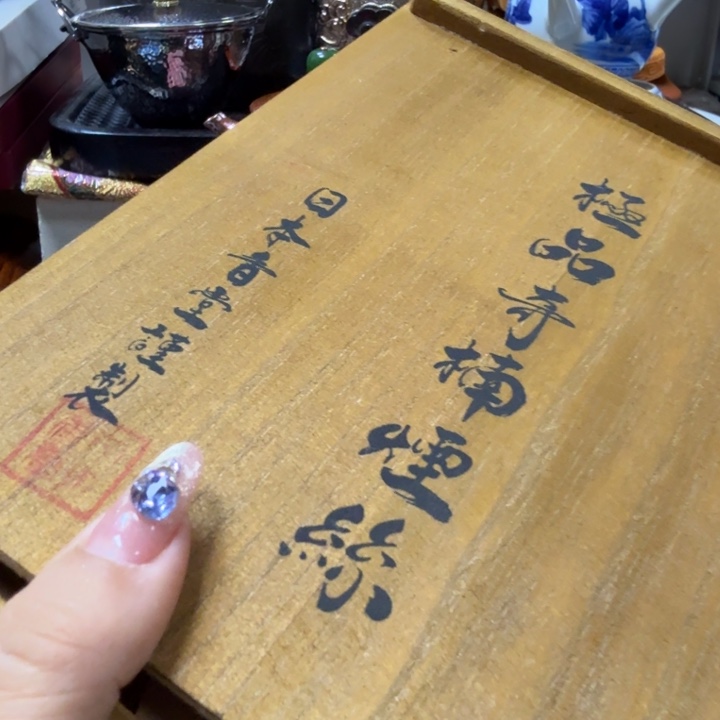 極品奇楠煙絲
日本香堂謹製